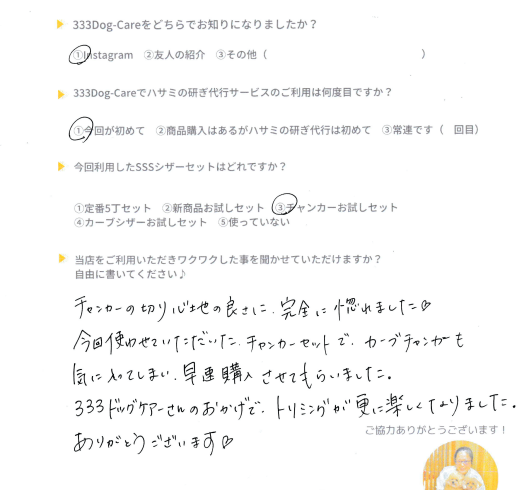 333Dog-Careをどちらでお知りになりましたか？
①Instagram ②友人の紹介 ③その他（ ）
333Dog-Careでハサミの研ぎ代行サービスのご利用は何度目ですか？
①今回が初めて ②商品購入はあるがハサミの研ぎ代行は初めて ③常連です（ 回目）
今回利用したSSSシザーセットはどれですか？
①定番5丁セット ②新商品お試しセット ③チャンカーお試しセット
④カーブシザーお試しセット ⑤使っていない
当店をご利用いただきワクワクした事を聞かせていただけますか？
自由に書いてください♪
チャンカーの切り心地の良さに、完全に惚れました♡
今回使わせていただいた、チャンカーセットで、カーブチャンカーも
気に入ってしまい、早速購入させてもらいました。
333ドッグケアーさんのおかげで、トリミングが更に楽しくなりました。
ありがとうございます♡
ご協力ありがとうございます！